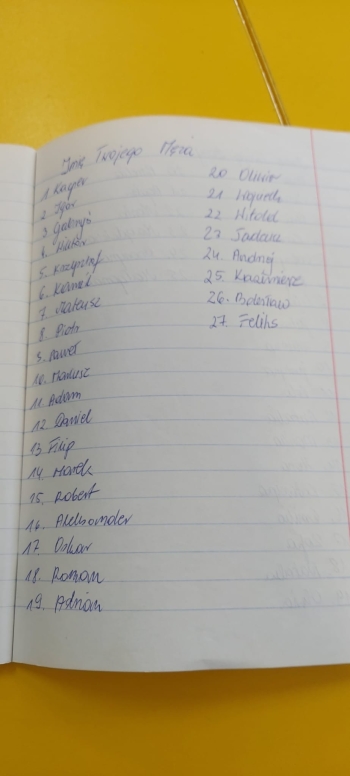 Imię Twojego Męża
1. Kacper
2. Igor
3. Gabryś
4. Wiktor
5. Krzysztof
6. Kamil
7. Mateusz
8. Piotr
9. Paweł
10. Mariusz
11. Adam
12. Daniel
13 Filip
14. Marek
15. Robert
16. Aleksander
17. Oskar
18. Roman
19. Adrian
20 Oliwier
21 Wojciech
22 Witold
23. Tadeusz
24. Andrzej
25. Kazimierz
26. Bolesław
27. Feliks